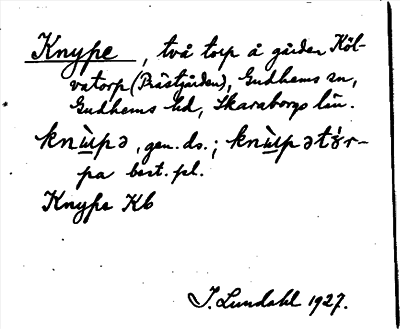 Knype, två torp å gården Köl-
vatorp (Prästgården), Gudhems sn,
Gudhems hd, Skaraborgs län.
knùpə, gen. ds.; knùpətór-
pa best. pl.
Knype Kb
I. Lundahl 1927.